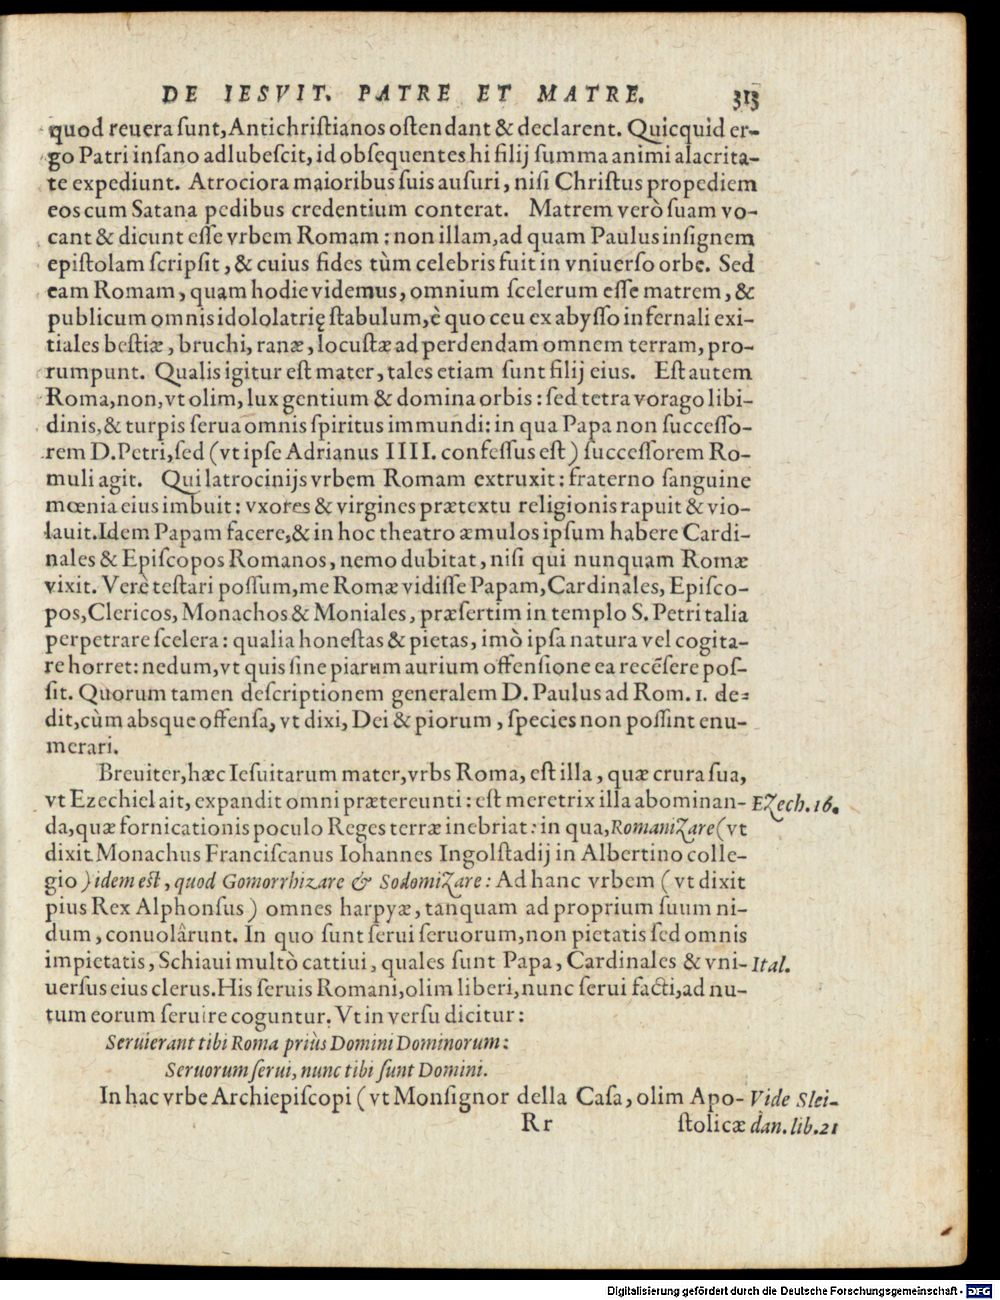 DE IESVIT. PATRE ET MATRE. 313
quod reuera ſunt, Antichriſtianos oſtendant & declarent. Quicquid er-
go Patri inſano adlubeſcit, id obſequentes hi filij ſumma animi alacrita-
te expediunt. Atrociora maioribus ſuis auſuri, niſi Chriſtus propediem
eos cum Satana pedibus credentium conterat. Matrem verò ſuam vo-
cant & dicunt eſſe vrbem Romam: non illam, ad quam Paulus inſignem
epiſtolam ſcripſit, & cuius fides tùm celebris fuit in vniuerſo orbe. Sed
eam Romam, quam hodie videmus, omnium ſcelerum eſſe matrem, &
publicum omnis idololatrię ſtabulum, è quo ceu ex abyſſo infernali exi-
tiales beſtiæ, bruchi, ranæ, locuſtæ ad perdendam omnem terram, pro-
rumpunt. Qualis igitur eſt mater, tales etiam ſunt filij eius. Eſt autem
Roma, non, vt olim, lux gentium & domina orbis: ſed tetra vorago libi-
dinis, & turpis ſerua omnis ſpiritus immundi: in qua Papa non ſucceſſo-
rem D. Petri, ſed (vt ipſe Adrianus IIII. confeſſus eſt) ſucceſſorem Ro-
muli agit. Qui latrocinijs vrbem Romam extruxit: fraterno ſanguine
mœnia eius imbuit: vxores & virgines prætextu religionis rapuit & vio-
lauit. Idem Papam facere, & in hoc theatro æmulos ipſum habere Cardi-
nales & Epiſcopos Romanos, nemo dubitat, niſi qui nunquam Romæ
vixit. Verè teſtari poſſum, me Romæ vidiſſe Papam, Cardinales, Epiſco-
pos, Clericos, Monachos & Moniales, præſertim in templo S. Petri talia
perpetrare ſcelera: qualia honeſtas & pietas, imò ipſa natura vel cogita-
re horret: nedum, vt quis ſine piarum aurium offenſione ea recēſere poſ-
ſit. Quorum tamen deſcriptionem generalem D. Paulus ad Rom. 1. de-
dit, cùm absque offenſa, vt dixi, Dei & piorum, ſpecies non poſſint enu-
merari.
Breuiter, hæc Ieſuitarum mater, vrbs Roma, eſt illa, quæ crura ſua,
vt Ezechiel ait, expandit omni prætereunti: eſt meretrix illa abominan- Ezech. 16.
da, quæ fornicationis poculo Reges terræ inebriat: in qua, Romanizare (vt
dixit Monachus Franciſcanus Iohannes Ingolſtadij in Albertino colle-
gio) idem eſt, quod Gomorrhizare & Sodomizare: Ad hanc vrbem (vt dixit
pius Rex Alphonſus) omnes harpyæ, tanquam ad proprium ſuum ni-
dum, conuolârunt. In quo ſunt ſerui ſeruorum, non pietatis ſed omnis
impietatis, Schiaui multò cattiui, quales ſunt Papa, Cardinales & vni- Ital.
uerſus eius clerus. His ſeruis Romani, olim liberi, nunc ſerui facti, ad nu-
tum eorum ſeruire coguntur. Vt in verſu dicitur:
Seruierant tibi Roma priùs Domini Dominorum:
Seruorum ſerui, nunc tibi ſunt Domini.
In hac vrbe Archiepiſcopi (vt Monſignor della Caſa, olim Apo- Vide Slei-
Rr ſtolicæ dan. lib. 21
Digitalisierung gefördert durch die Deutsche Forschungsgemeinschaft - DFG